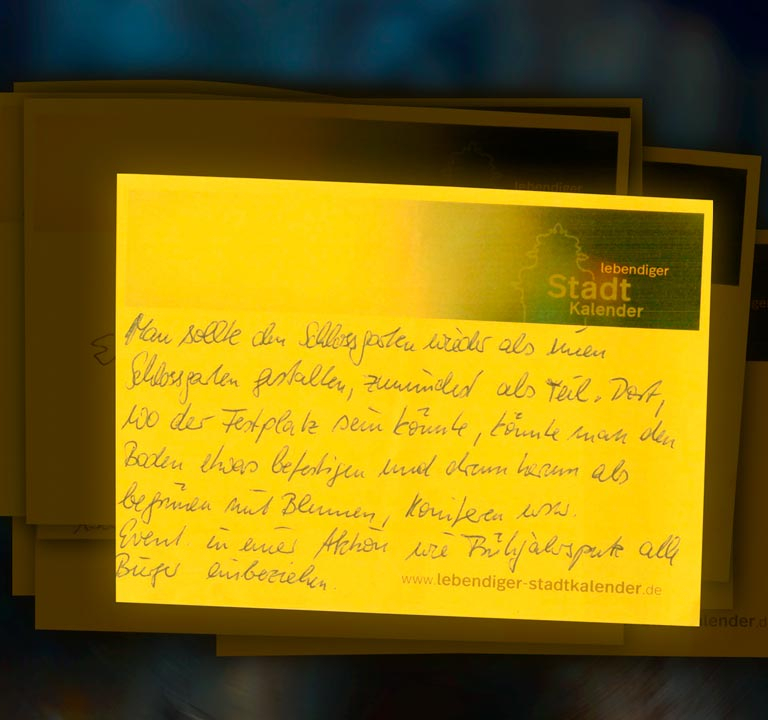 lebendiger
lebendiger
Stadt
Kalender
Man sollte den Schlossgarten wieder als einen
Schlossgarten gestalten, zumindest als Teil. Dort,
wo der Festplatz sein könnte, könnte man den
Boden etwas befestigen und drum herum als
begrünen mit Blumen, Koniferen usw.
Event. in einer Aktion wie Frühjahrsputz alle
Bürger einbeziehen.
www.lebendiger-stadtkalender.de
lender.d